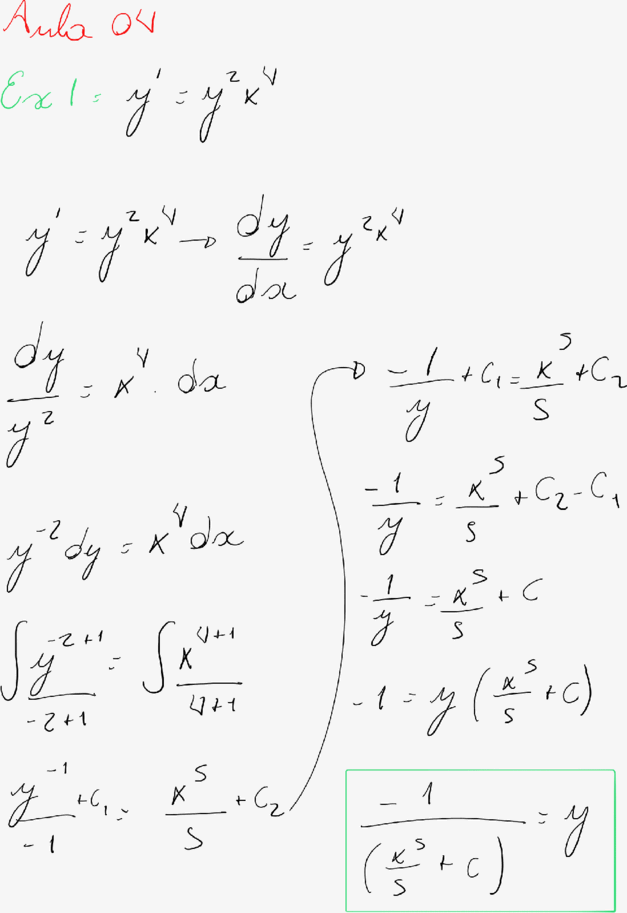 Aula 04
Ex 1 = y' = y² x⁴
y' = y² x⁴ → dy/dx = y² x⁴
dy/y² = x⁴ . dx
y⁻² dy = x⁴ dx
∫ y⁻²⁺¹/-2+1 = ∫ x⁴⁺¹/4+1
y⁻¹/-1 + C₁ = x⁵/5 + C₂
→ -1/y + C₁ = x⁵/5 + C₂
-1/y = x⁵/5 + C₂ - C₁
-1/y = x⁵/5 + C
-1 = y (x⁵/5 + C)
-1/(x⁵/5 + C) = y